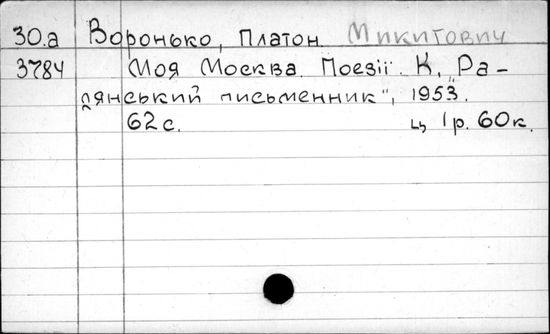 30.а Воронько, Платон Микитович
3784 Моя Москва. Поезії. К, „Ра-
дянський письменник“, 1953.
62 с. ц 1р. 60к.